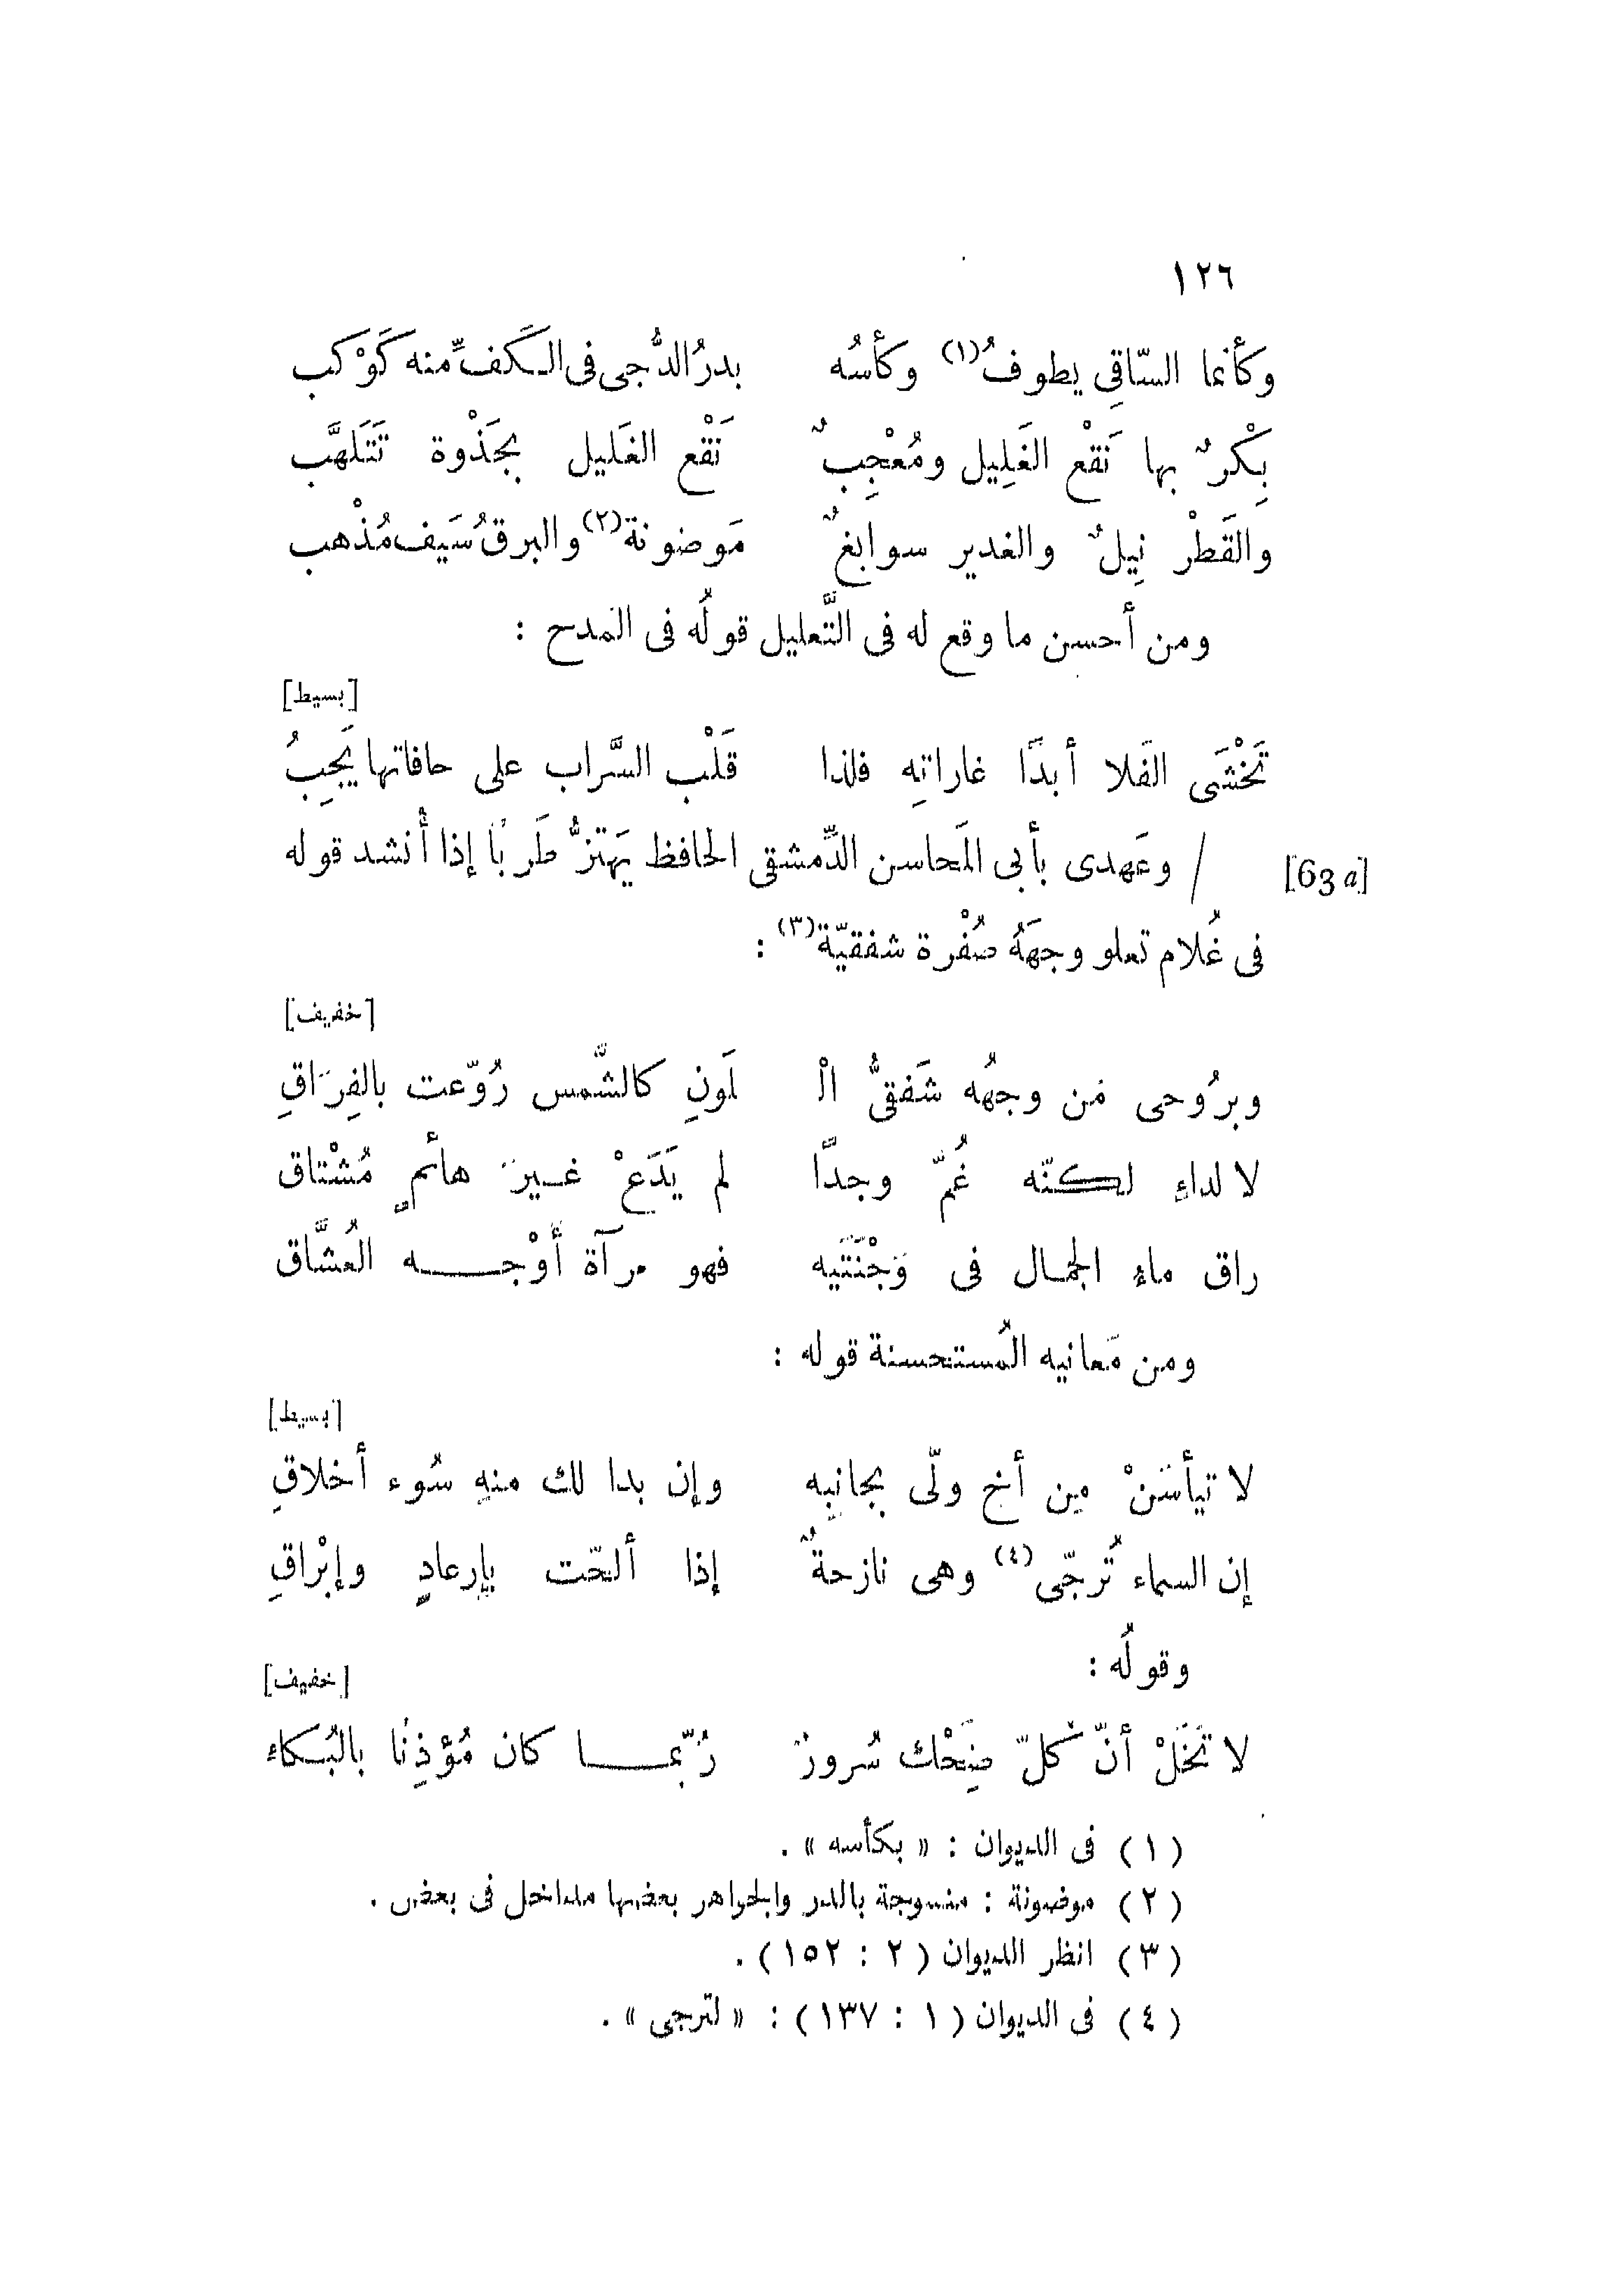 ١٢٦
وكأنما السّاقِى يطوفُ(١) وكأسُه بدرُ الدُّجى فى الكَفِّ منه كَوْكب
بِكْرٌ بها نَقْع الغَلِيل ومُعْجِبٌ نَقْع الغَليل بجَذْوة تَتَلهَّب
والقَطْر نِيلٌ والغدير سوابغٌ مَوضونة(٢) والبرقُ سَيف مُذْهب
ومن أحسن ما وقع له فى التَّعليل قولُه فى المدح :
[بسيط]
تَخْشَى الفَلا أبدًا غاراتِه فلذا قَلْب السَّراب على حافاتها يَجِبُ
[63 a] / وعَهدى بأبى المَحاسن الدِّمشقى الحافظ يَهتزُّ طَربًا إذا أُنشد قوله
فى غُلام تعلو وجهَهُ صُفْرة شفقيّة(٣) :
[خفيف]
وبرُوحى مَن وجهُه شَفقىُّ الْ لَونِ كالشَّمس رُوّعت بالفِرَاقِ
لا لداءٍ لكنّه غُمّ وجدًّا لم يَدَعْ غيرَ هائمٍ مُشْتاق
راق ماء الجمال فى وَجْنَتَيه فهو مرآة أَوْجه العُشَّاق
ومن مَعانيه المُستحسنة قوله :
[بسيط]
لا تيأسَنْ مِن أخ ولّى بجانبِه وإن بدا لك منهِ سُوء أخلاقِ
إن السماء تُرجّى(٤) وهى نازحةٌ إذا ألحّت بإرعادٍ وإبْراقِ
وقولُه :
[خفيف]
لا تَخَلْ أنّ كلّ ضَحِْك سُرورٌ رُبّما كان مُؤذِنًا بالبُكاء
(١) فى الديوان : « بكأسه » .
(٢) موضونة : منسوجة بالدر والجواهر بعضها مداخل فى بعض .
(٣) انظر الديوان (٢ : ١٥٢) .
(٤) فى الديوان (١ : ١٣٧) : « لترجى » .